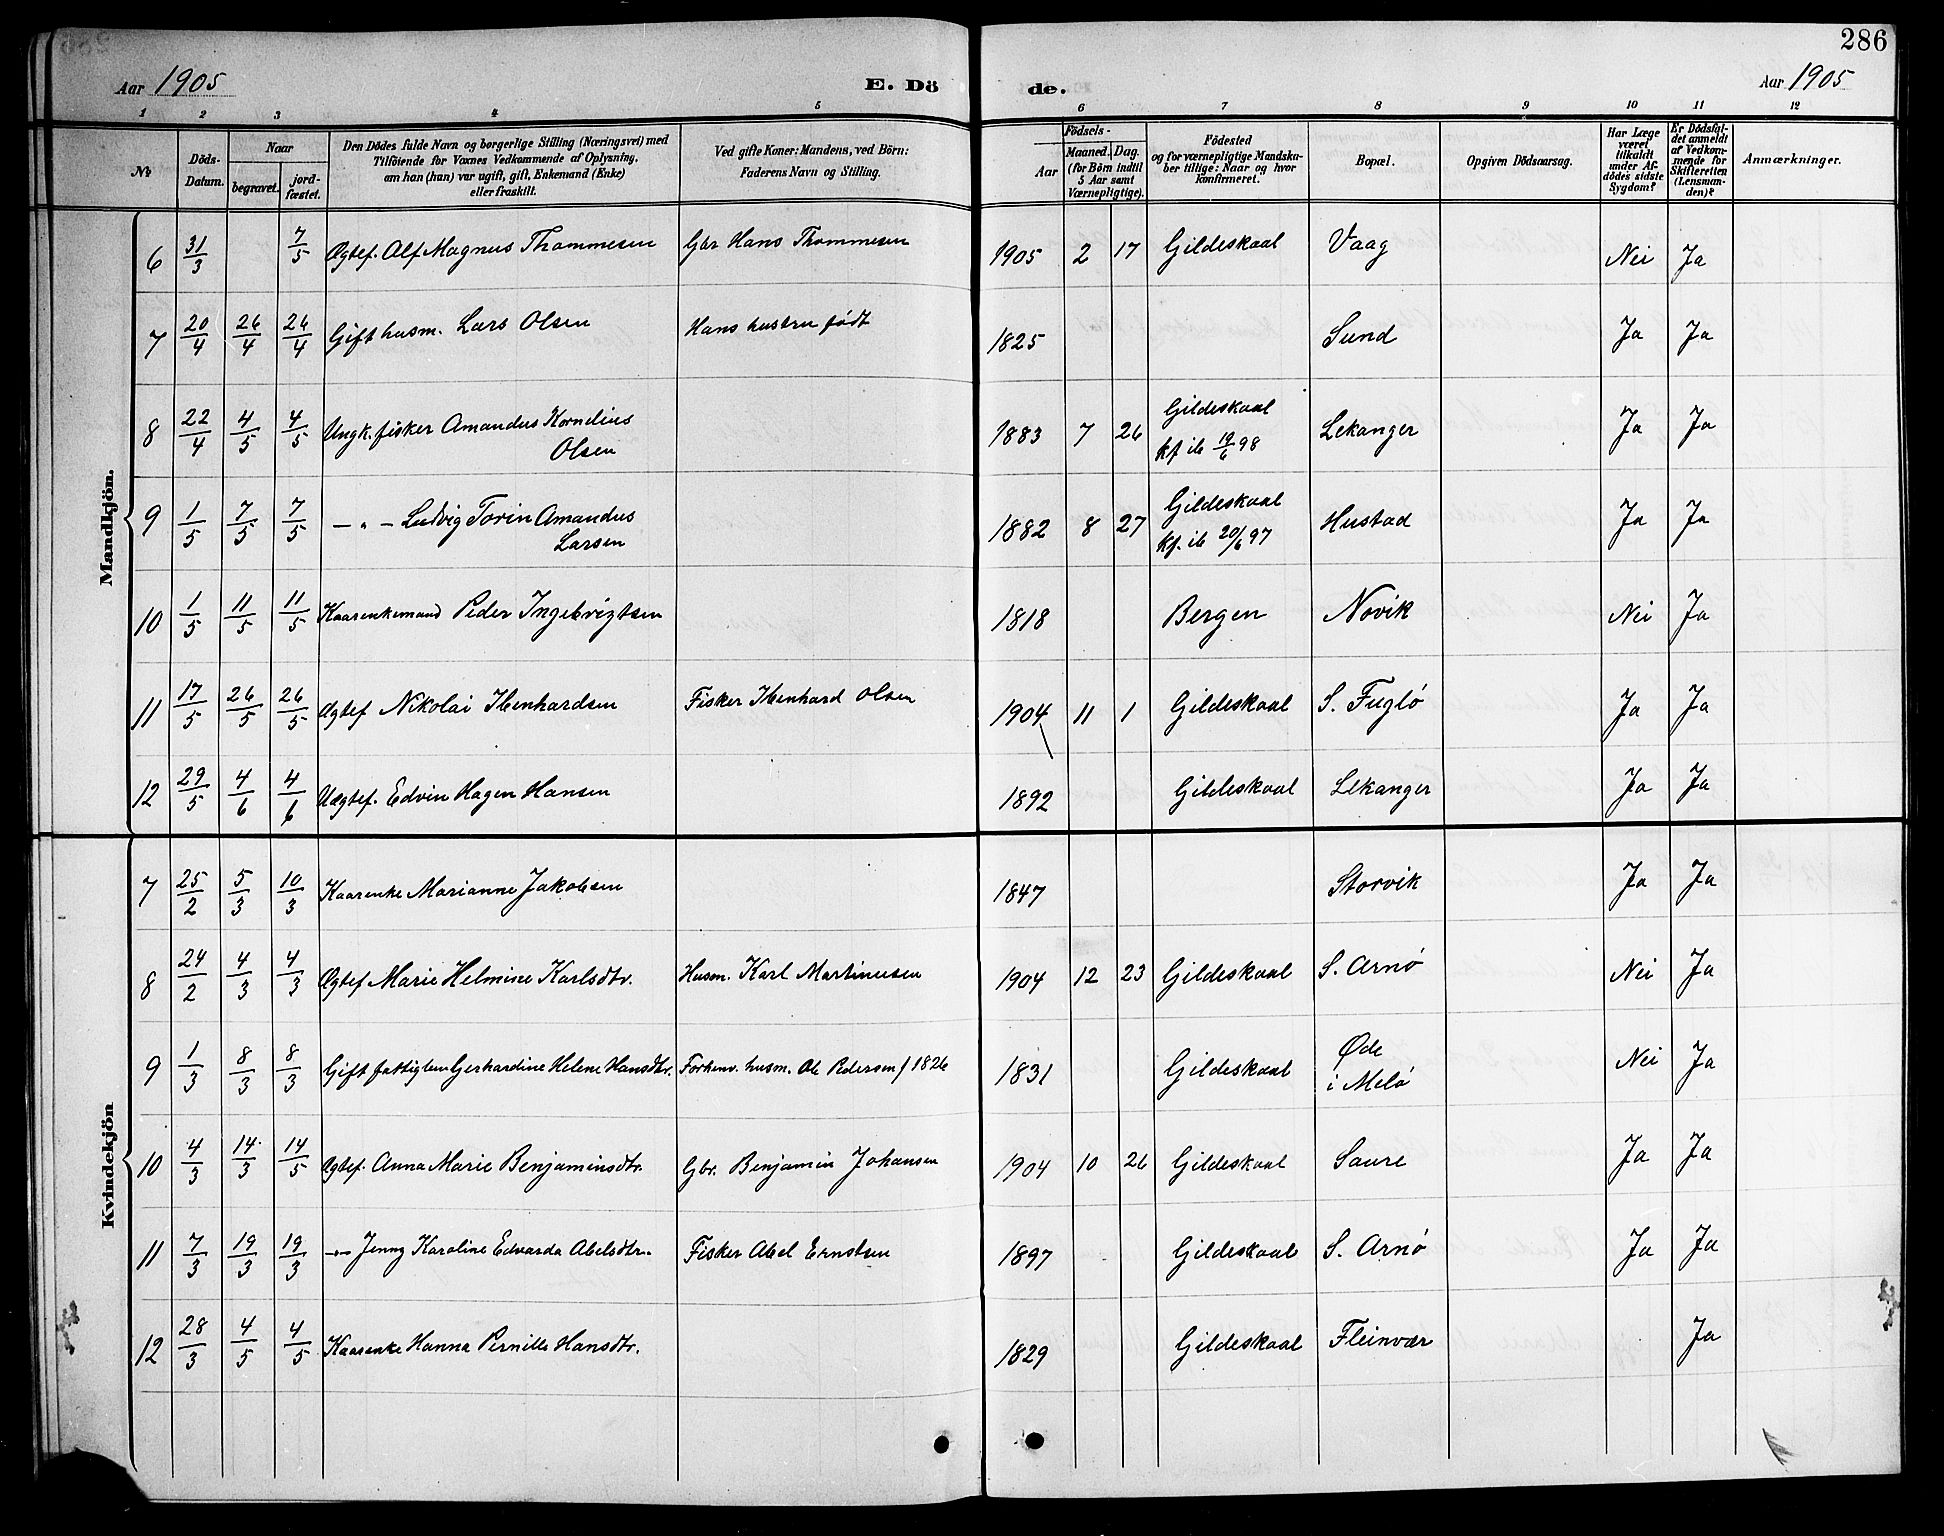 286
Aar 1905 E. Dö de. Aar 1905
1 2 3 4 5 6 7 8 9 10 11 12
No
Döds-Datum.
Naar
begravet.
jord-fæstet.
Den Dödes fulde Navn og borgerlige Stilling (Næringsvei) med
Tilföiende for Voxnes Vedkommende af Oplysning,
om han (hun) var ugift, gift, Enkemand (Enke)
eller fraskilt.
Ved gifte Koner: Mandens, ved Börn:
Faderens Navn og Stilling.
Födsels-
Aar
Maaned. Dag.
(for Börn indtil
5 Aar samt
Værnepligtige).
Födested
og for værnepligtige Mandska-
ber tillige: Naar og hvor
konfirmeret.
Bopæl.
Opgiven Dödsaarsag.
Har Læge
været
tilkaldt
under Af-
dödes sidste
Sygdom?
Er Dödsfal-
det anmeldt
af Vedkom-
mende for
Skifteretten
(Lensman-
den)?
Anmærkninger.
Mandkjön.
6 31/3 7/5 Ægtef. Alf Magnus Thommesen Gbr Hans Thommesen 1905 2 17 Gildeskaal Vaag Nei Ja
7 20/4 26/4 26/4 Gift husm. Lars Olsen Hans hustru født 1825 Sund Ja Ja
8 22/4 4/5 4/5 Ungk. fisker Amandus Kornelius
Olsen 1883 7 26 Gildeskaal
kf. ib 19/6 98 Lekanger Ja Ja
9 1/5 7/5 7/5 — " — Ludvig Torin Amandus
Larsen 1882 8 27 Gildeskaal
kf. ib 20/6 97 Hustad Ja Ja
10 1/5 11/5 11/5 Kaarenkemand Peder Ingebrigtsen 1818 Bergen Novik Nei Ja
11 17/5 26/5 26/5 Ægtef Nikolai Ihenhardsen Fisker Ihenhard Olsen 1904 11 1 Gildeskaal S. Fuglø Ja Ja
12 29/5 4/6 4/6 Uægtef. Edvin Hagen Hansen 1892 Gildeskaal Lekanger Ja Ja
Kvindekjön
7 25/2 5/3 10/3 Kaarenke Marianne Jakobsen 1847 Storvik Ja Ja
8 24/2 4/3 4/3 Ægtef Marie Helmine Karlsdtr. Husm. Karl Martinusen 1904 12 23 Gildeskaal S. Arnø Nei Ja
9 1/3 8/3 8/3 Gift fattiglem Gerhardine Helene Hansdtr. Forhenv. husm. Ole Pedersen f 1826 1831 Gildeskaal Øde
i Melø Nei Ja
10 4/3 14/3 14/5 Ægtef. Anna Marie Benjaminsdtr. Gbr. Benjamin Johansen 1904 10 26 Gildeskaal Saure Ja Ja
11 7/3 19/3 19/3 —"— Jenny Karoline Edvarda Abelsdtr. Fisker Abel Ernstsen 1897 Gildeskaal S. Arnø Ja Ja
12 28/3 4/5 4/5 Kaarenke Hanna Pernille Hansdtr. 1829 Gildeskaal Fleinvær Ja